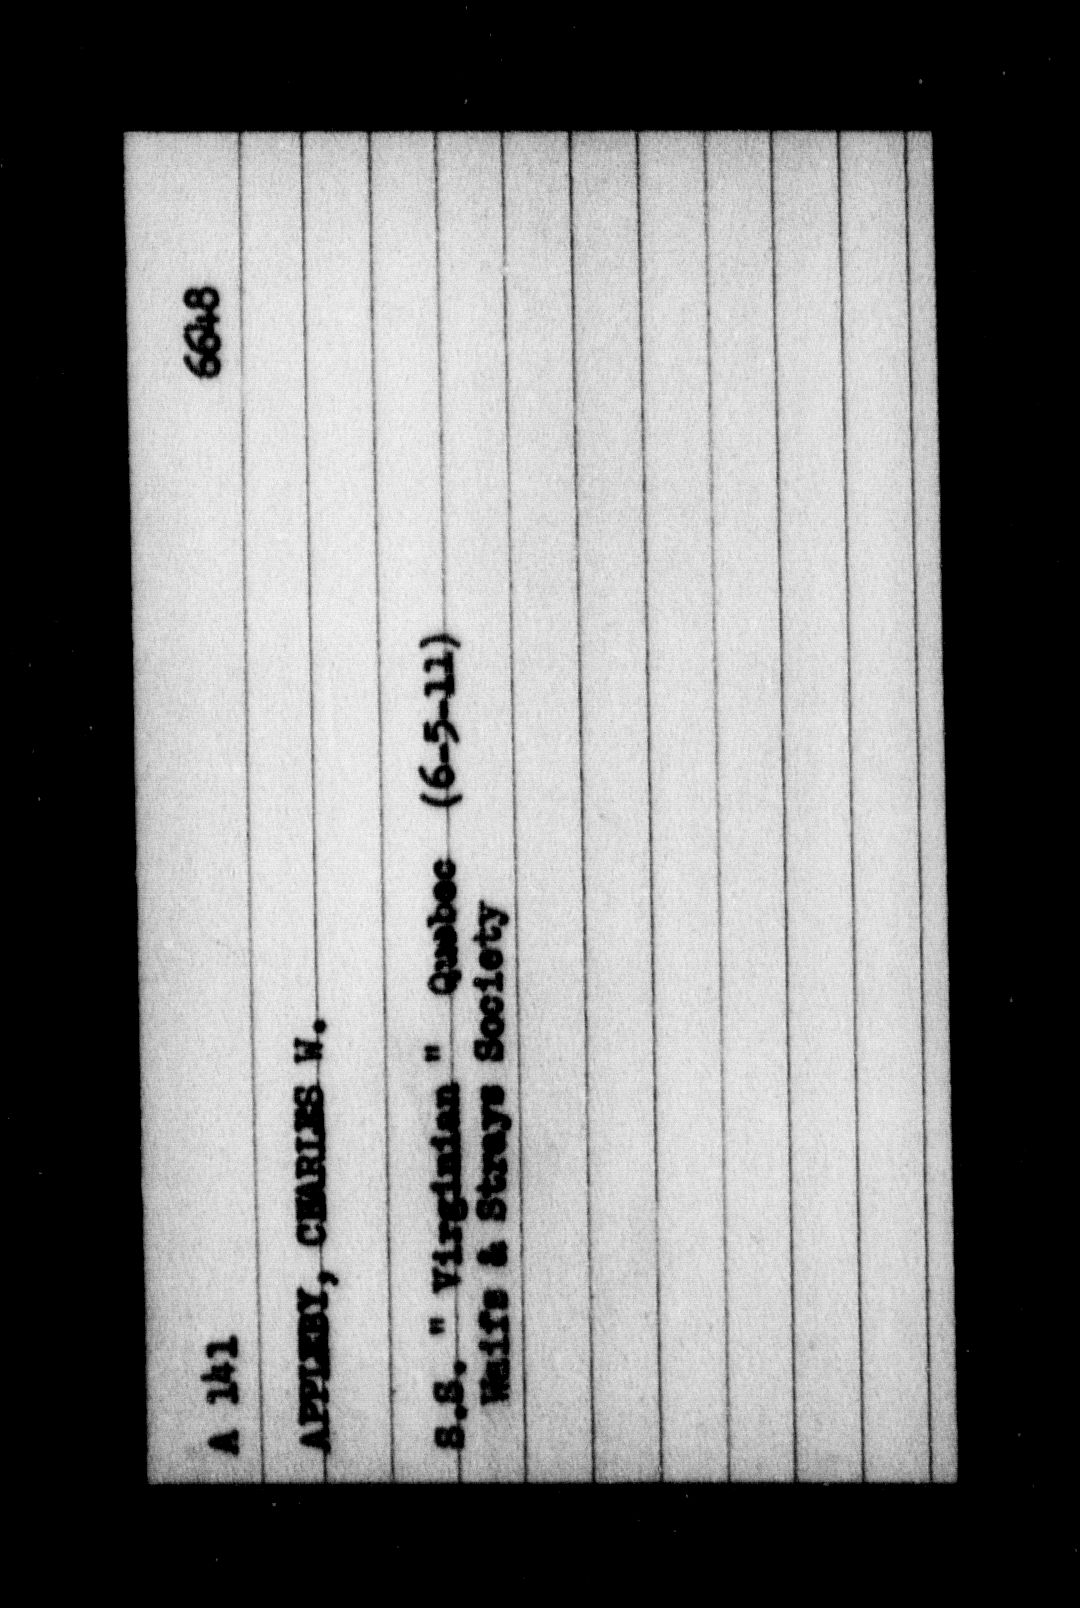 A 141 6648
APPLEBY, CHARLES W.
S.S. " Virginian " Quebec (6-5-11)
Waifs & Strays Society